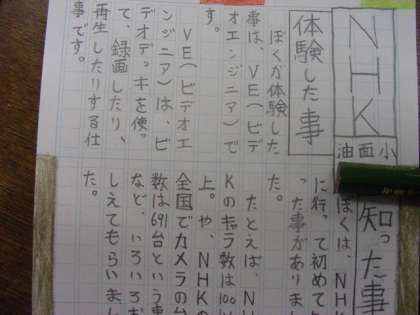 NHK
油面小
体験した事
ぼくが体験した
事は、VE(ビデ
オエンジニア)で
す。
VE(ビデオエ
ンジニア)は、ビ
デオデッキを使っ
て、録画したり、
再生したりする仕
事です。
知った事
ぼくは、NHK
に行って初めて
った事がありまし
た。
たとえば、N
Kのキャラ数は100以
上。や、NHKの
全国でカメラの台
数は691台という事
など、いろいろお
しえてもらいまし
た。